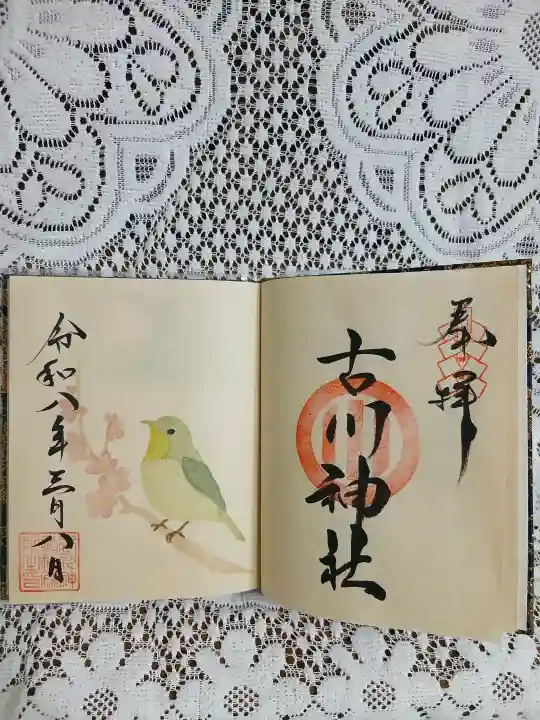 奉拝
古川神社
令和八年三月八日